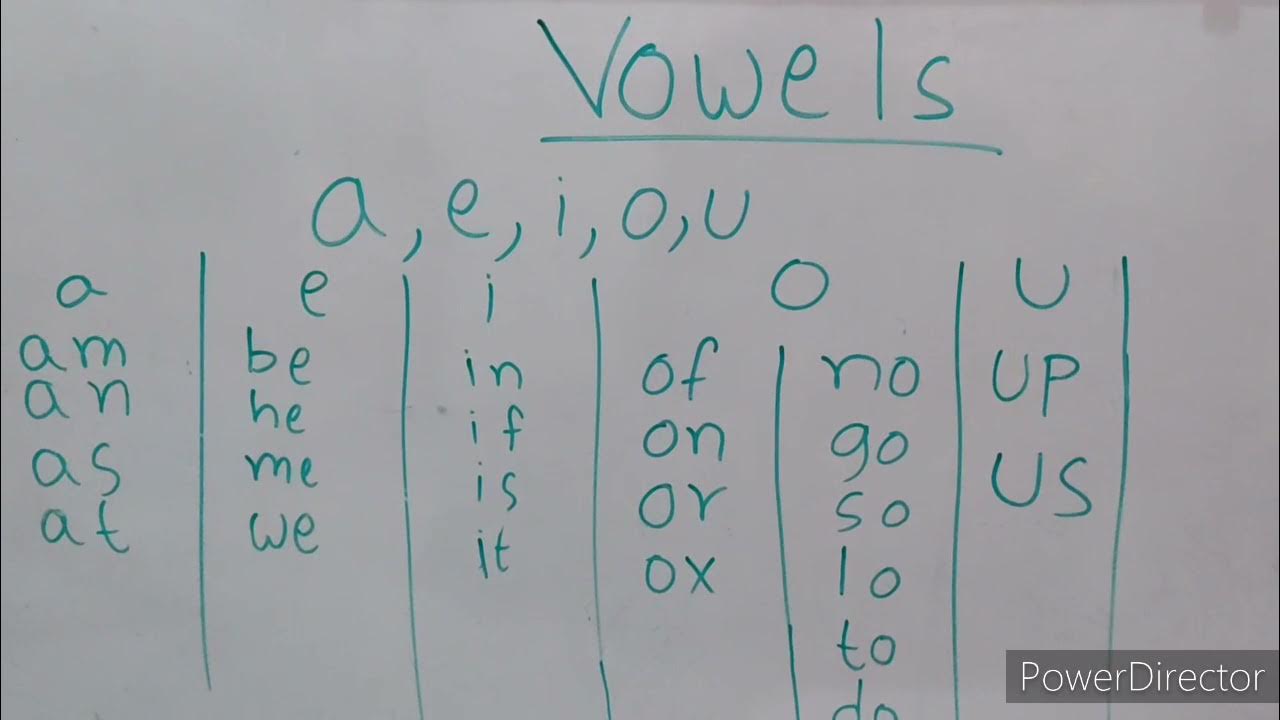 Vowels
a, e, i, o, u
a e i o u
am be in of no up
an he if on go us
as me is or so
at we it ox lo
to
do
PowerDirector